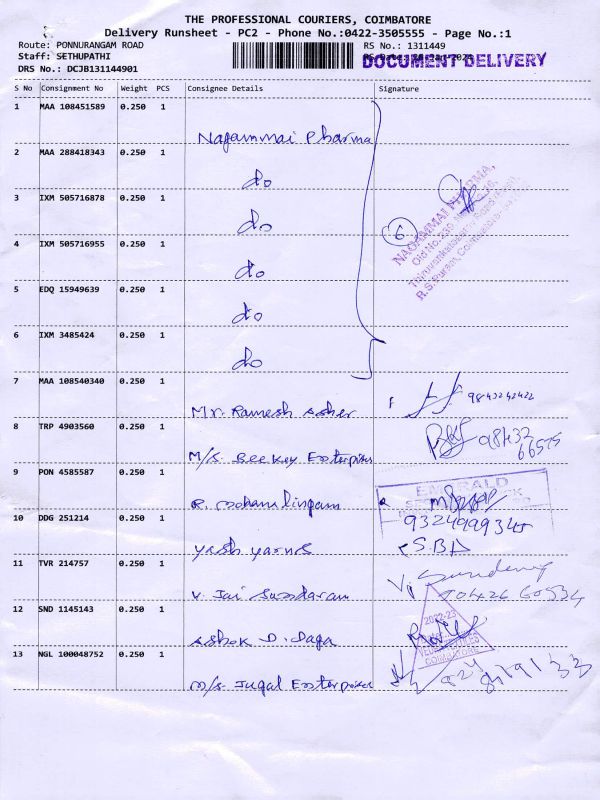 THE PROFESSIONAL COURIERS, COIMBATORE
Delivery Runsheet - PC2 - Phone No.:0422-3505555 - Page No.:1
Route: PONNURANGAM ROAD
RS No.: 1311449
Staff: SETHUPATHI
DOCUMENT DELIVERY
DRS No.: DCJB131144901
S No Consignment No Weight PCS Consignee Details Signature
1 MAA 108451589 0.250 1
Nagammai Pharma
2 MAA 288418343 0.250 1
do
3 IXM 505716878 0.250 1
do
4 IXM 505716955 0.250 1
do
5 EDQ 15949639 0.250 1
do
6 IXM 3485424 0.250 1
do
6
NAGAMMAI PHARMA,
R.S. Puram, Coimbatore
7 MAA 108540340 0.250 1
Mr. Ramesh Asher
8 TRP 4903560 0.250 1
M/s. Beekey Enterprises
98432
66575
9 PON 4585587 0.250 1
R. Mohanalingam
EMERALD
10 DDG 251214 0.250 1
Yash Yarns
11 TVR 214757 0.250 1
V. Jai Sundaram
12 SND 1145143 0.250 1
Ashok D. Daga
2022-23
COIMBATORE
13 NGL 100048752 0.250 1
M/s Jugal Enterprises